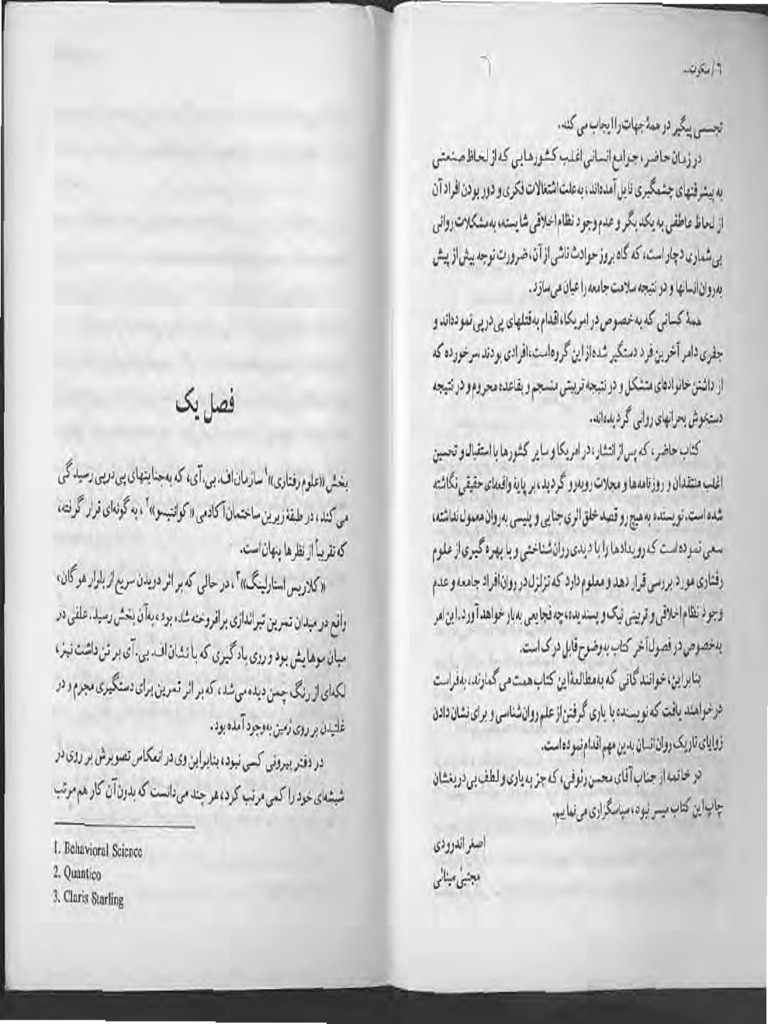 ۶ / سکوت...
۶
تجسسی پیگیر در همهٔ جهات را ایجاب می‌کند.
در زمان حاضر، جوامع انسانی اغلب کشورهایی که از لحاظ صنعتی
به پیشرفتهای چشمگیری نایل آمده‌اند، به علت اشتغالات فکری و دور بودن افراد آن
از لحاظ عاطفی به یکدیگر و عدم وجود نظام اخلاقی شایسته، به مشکلات روانی
بی‌شماری دچار است، که گاه بروز حوادث ناشی از آن، ضرورت توجه بیش از پیش
به روان انسانها و در نتیجه سلامت جامعه را عیان می‌سازد.
همهٔ کسانی که به خصوص در امریکا، اقدام به قتلهای پی‌درپی نموده‌اند و
جفری دامر آخرین فرد دستگیر شده از این گروه است، افرادی بودند سرخورده که
از داشتن خانواده‌ای متشکل و در نتیجه تربیتی منسجم و بقاعده محروم و در نتیجه
دستخوش بحرانهای روانی گردیده‌اند.
کتاب حاضر، که پس از انتشار، در امریکا و سایر کشورها با استقبال و تحسین
اغلب منتقدان و روزنامه‌ها و مجلات روبه‌رو گردید، بر پایهٔ واقعه‌ای حقیقی نگاشته
شده است. نویسنده به هیچ رو قصد خلق اثری جنایی و پلیسی به روان معمول نداشته،
سعی نموده است که رویدادها را با دیدی روان‌شناختی و با بهره‌گیری از علوم
رفتاری مورد بررسی قرار دهد و معلوم دارد که تزلزل در روان افراد جامعه و عدم
وجود نظام اخلاقی و تربیتی نیک و پسندیده، چه فجایعی به بار خواهد آورد. این امر
به خصوص در فصول آخر کتاب به وضوح قابل درک است.
بنابراین، خوانندگانی که به مطالعهٔ این کتاب همت می‌گمارند، به فراست
درخواهند یافت که نویسنده با یاری گرفتن از علم روان‌شناسی و برای نشان دادن
زوایای تاریک روان انسان بدین مهم اقدام نموده است.
در خاتمه از جناب آقای محسن رئوفی، که جز به یاری و لطف بی‌دریغشان
چاپ این کتاب میسر نبود، سپاسگزاری می‌نماییم.
اصغر اندرودی
مجتبیٰ مینائی
فصل یک
بخش «علوم رفتاری»۱ سازمان اف. بی. آی، که به جنایتهای پی‌درپی رسیدگی
می‌کند، در طبقهٔ زیرین ساختمان آکادمی «کوانتیسو»۲، به گونه‌ای قرار گرفته،
که تقریباً از نظرها پنهان است.
«کلاریس استارلینگ»۳، در حالی که بر اثر دویدن سریع از بلوار هوگان،
واقع در میدان تمرین تیراندازی برافروخته شده بود، به آن بخش رسید. علفی در
میان موهایش بود و روی بادگیری که با نشان اف. بی. آی بر تن داشت نیز،
لکه‌ای از رنگ چمن دیده می‌شد، که بر اثر تمرین برای دستگیری مجرم و در
غلتیدن بر روی زمین به وجود آمده بود.
در دفتر بیرونی کسی نبود، بنابراین وی در انعکاس تصویرش بر روی در
شیشه‌ای خود را کمی مرتب کرد، هر چند می‌دانست که بدون آن کار هم مرتب
1. Behavioral Science
2. Quantico
3. Claris Starling